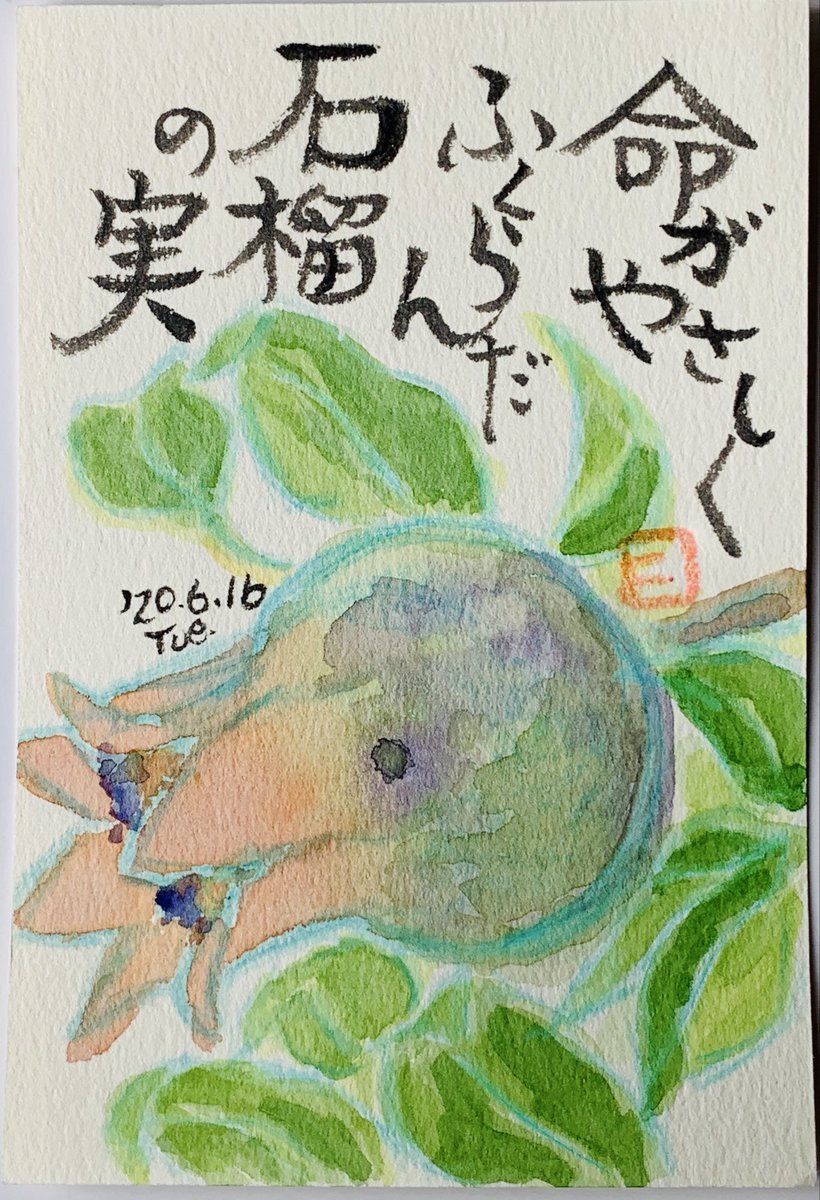 命がやさしく
ふくらんだ
石榴
の実
'20.6.16
Tue.